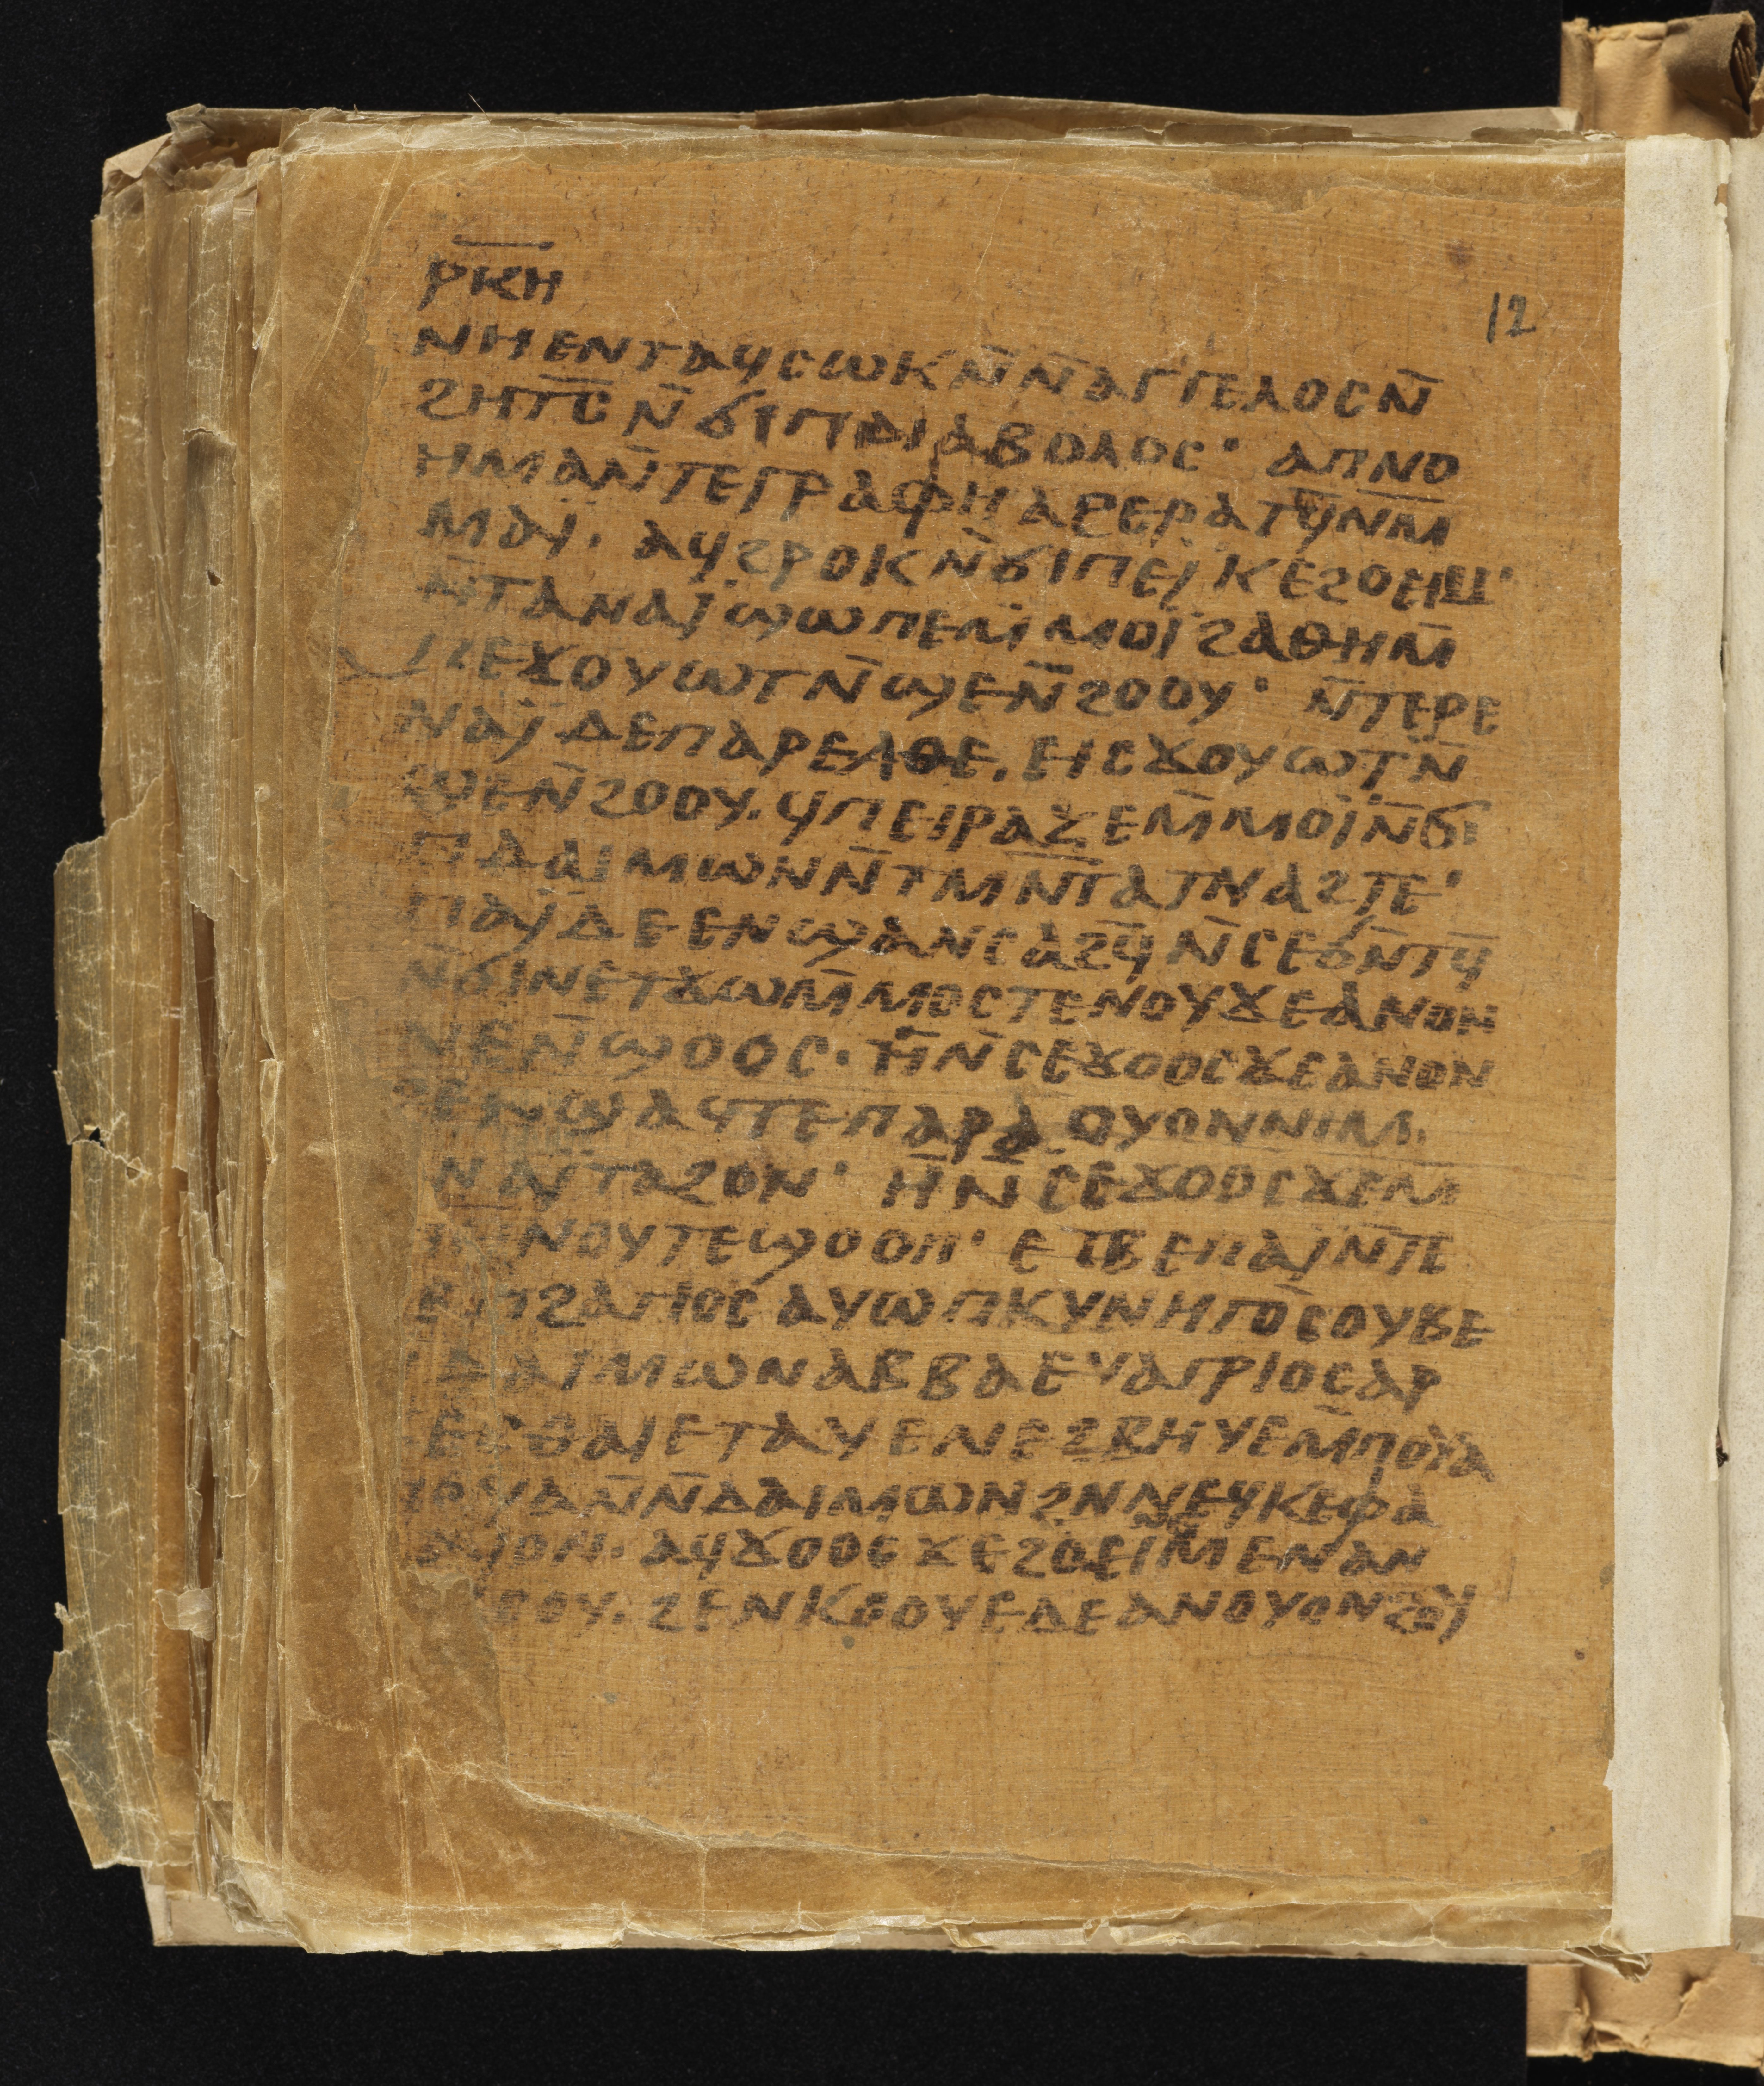 ⲣⲕⲏ
12
ⲛⲏⲉⲛⲧⲁϥⲥⲱⲕⲛ̄ⲛ̄ⲁⲅⲅⲉⲗⲟⲥⲛ̄
ϩⲏⲧⲥ̄ⲛ̄ϭⲓⲡⲇⲓⲁⲃⲟⲗⲟⲥ· ⲁⲡⲛⲟ
ⲏⲙⲁⲛ̄ⲧⲉⲅⲣⲁⲫⲏⲁϩⲉⲣⲁⲧϥ̄ⲛⲙ̄
ⲙⲁⲓ̈. ⲁϥϩⲣⲟⲕⲛ̄ϭⲓⲡⲉⲓ̈ⲕⲉϩⲟⲉⲓⲙ·
ⲛ̄ⲧⲁⲛⲁⲓ̈ϣⲱⲡⲉⲙ̄ⲙⲟⲓ̈ϩⲁⲑⲏⲙ̄
ⲡⲉϫⲟⲩⲱⲧⲛ̄ϣⲉⲛ̄ϩⲟⲟⲩ· ⲛ̄ⲧⲉⲣⲉ
ⲛⲁⲓ̈ⲇⲉⲡⲁⲣⲉⲗⲑⲉ. ⲉⲓⲥϫⲟⲩⲱⲧⲛ̄
ϣⲉⲛ̄ϩⲟⲟⲩ. ϥⲡⲉⲓⲣⲁⲍⲉⲙ̄ⲙⲟⲓ̈ⲛ̄ϭⲓ
ⲡⲇⲁⲓⲙⲱⲛⲛ̄ⲧⲙⲛ̄ⲧⲁⲧⲛⲁϩⲧⲉ·
ⲡⲁⲓ̈ⲇⲉⲉⲛϣⲁⲛⲥⲁϩϥ̄ⲛ̄ⲥⲉϭⲛ̄ⲧϥ̄
ⲛ̄ϭⲓⲛⲉⲧϫⲱⲙ̄ⲙⲟⲥⲧⲉⲛⲟⲩϫⲉⲁⲛⲟⲛ
ⲙⲉⲛ̄ϣⲟⲟⲥ. ⲏ̄ⲛ̄ⲥⲉϫⲟⲟⲥϫⲉⲁⲛⲟⲛ
ϩⲉⲛϣⲁϥⲧⲉⲡⲁⲣⲁⲟⲩⲟⲛⲛⲓⲙ.
ⲛⲁⲓ̈ⲧⲁϩⲟⲛ· ⲏ̄ⲛ̄ⲥⲉϫⲟⲟⲥϫⲉⲙ̄
ⲙⲛ̄ⲛⲟⲩⲧⲉϣⲟⲟⲡ· ⲉⲧⲃⲉⲡⲁⲓ̈ⲛ̄ⲧ
ϩⲁⲅⲓⲟⲥⲁⲩⲱⲡⲕⲩⲛⲏⲅⲟⲥⲟⲩⲃⲉ
ⲇⲁⲓⲙⲱⲛⲁⲃⲃⲁⲉⲩⲁⲅⲣⲓⲟⲥⲁⲣ
ⲉⲧⲁⲩⲉⲛⲉϩⲃⲏⲩⲉⲙ̄ⲡⲟⲩⲁ
ⲡⲟⲩⲁⲛ̄ⲛ̄ⲇⲁⲓⲙⲱⲛϩⲛⲛⲉϥⲕⲉⲫⲁ
ⲗⲁⲓⲟⲛ. ⲁϥϫⲟⲟⲥϫⲉϩⲟⲉⲓⲙⲉⲛⲁⲛ
ϩⲉⲛⲕⲟⲟⲩⲉⲇⲉⲁⲛⲟⲩⲟⲛϩⲟⲩ